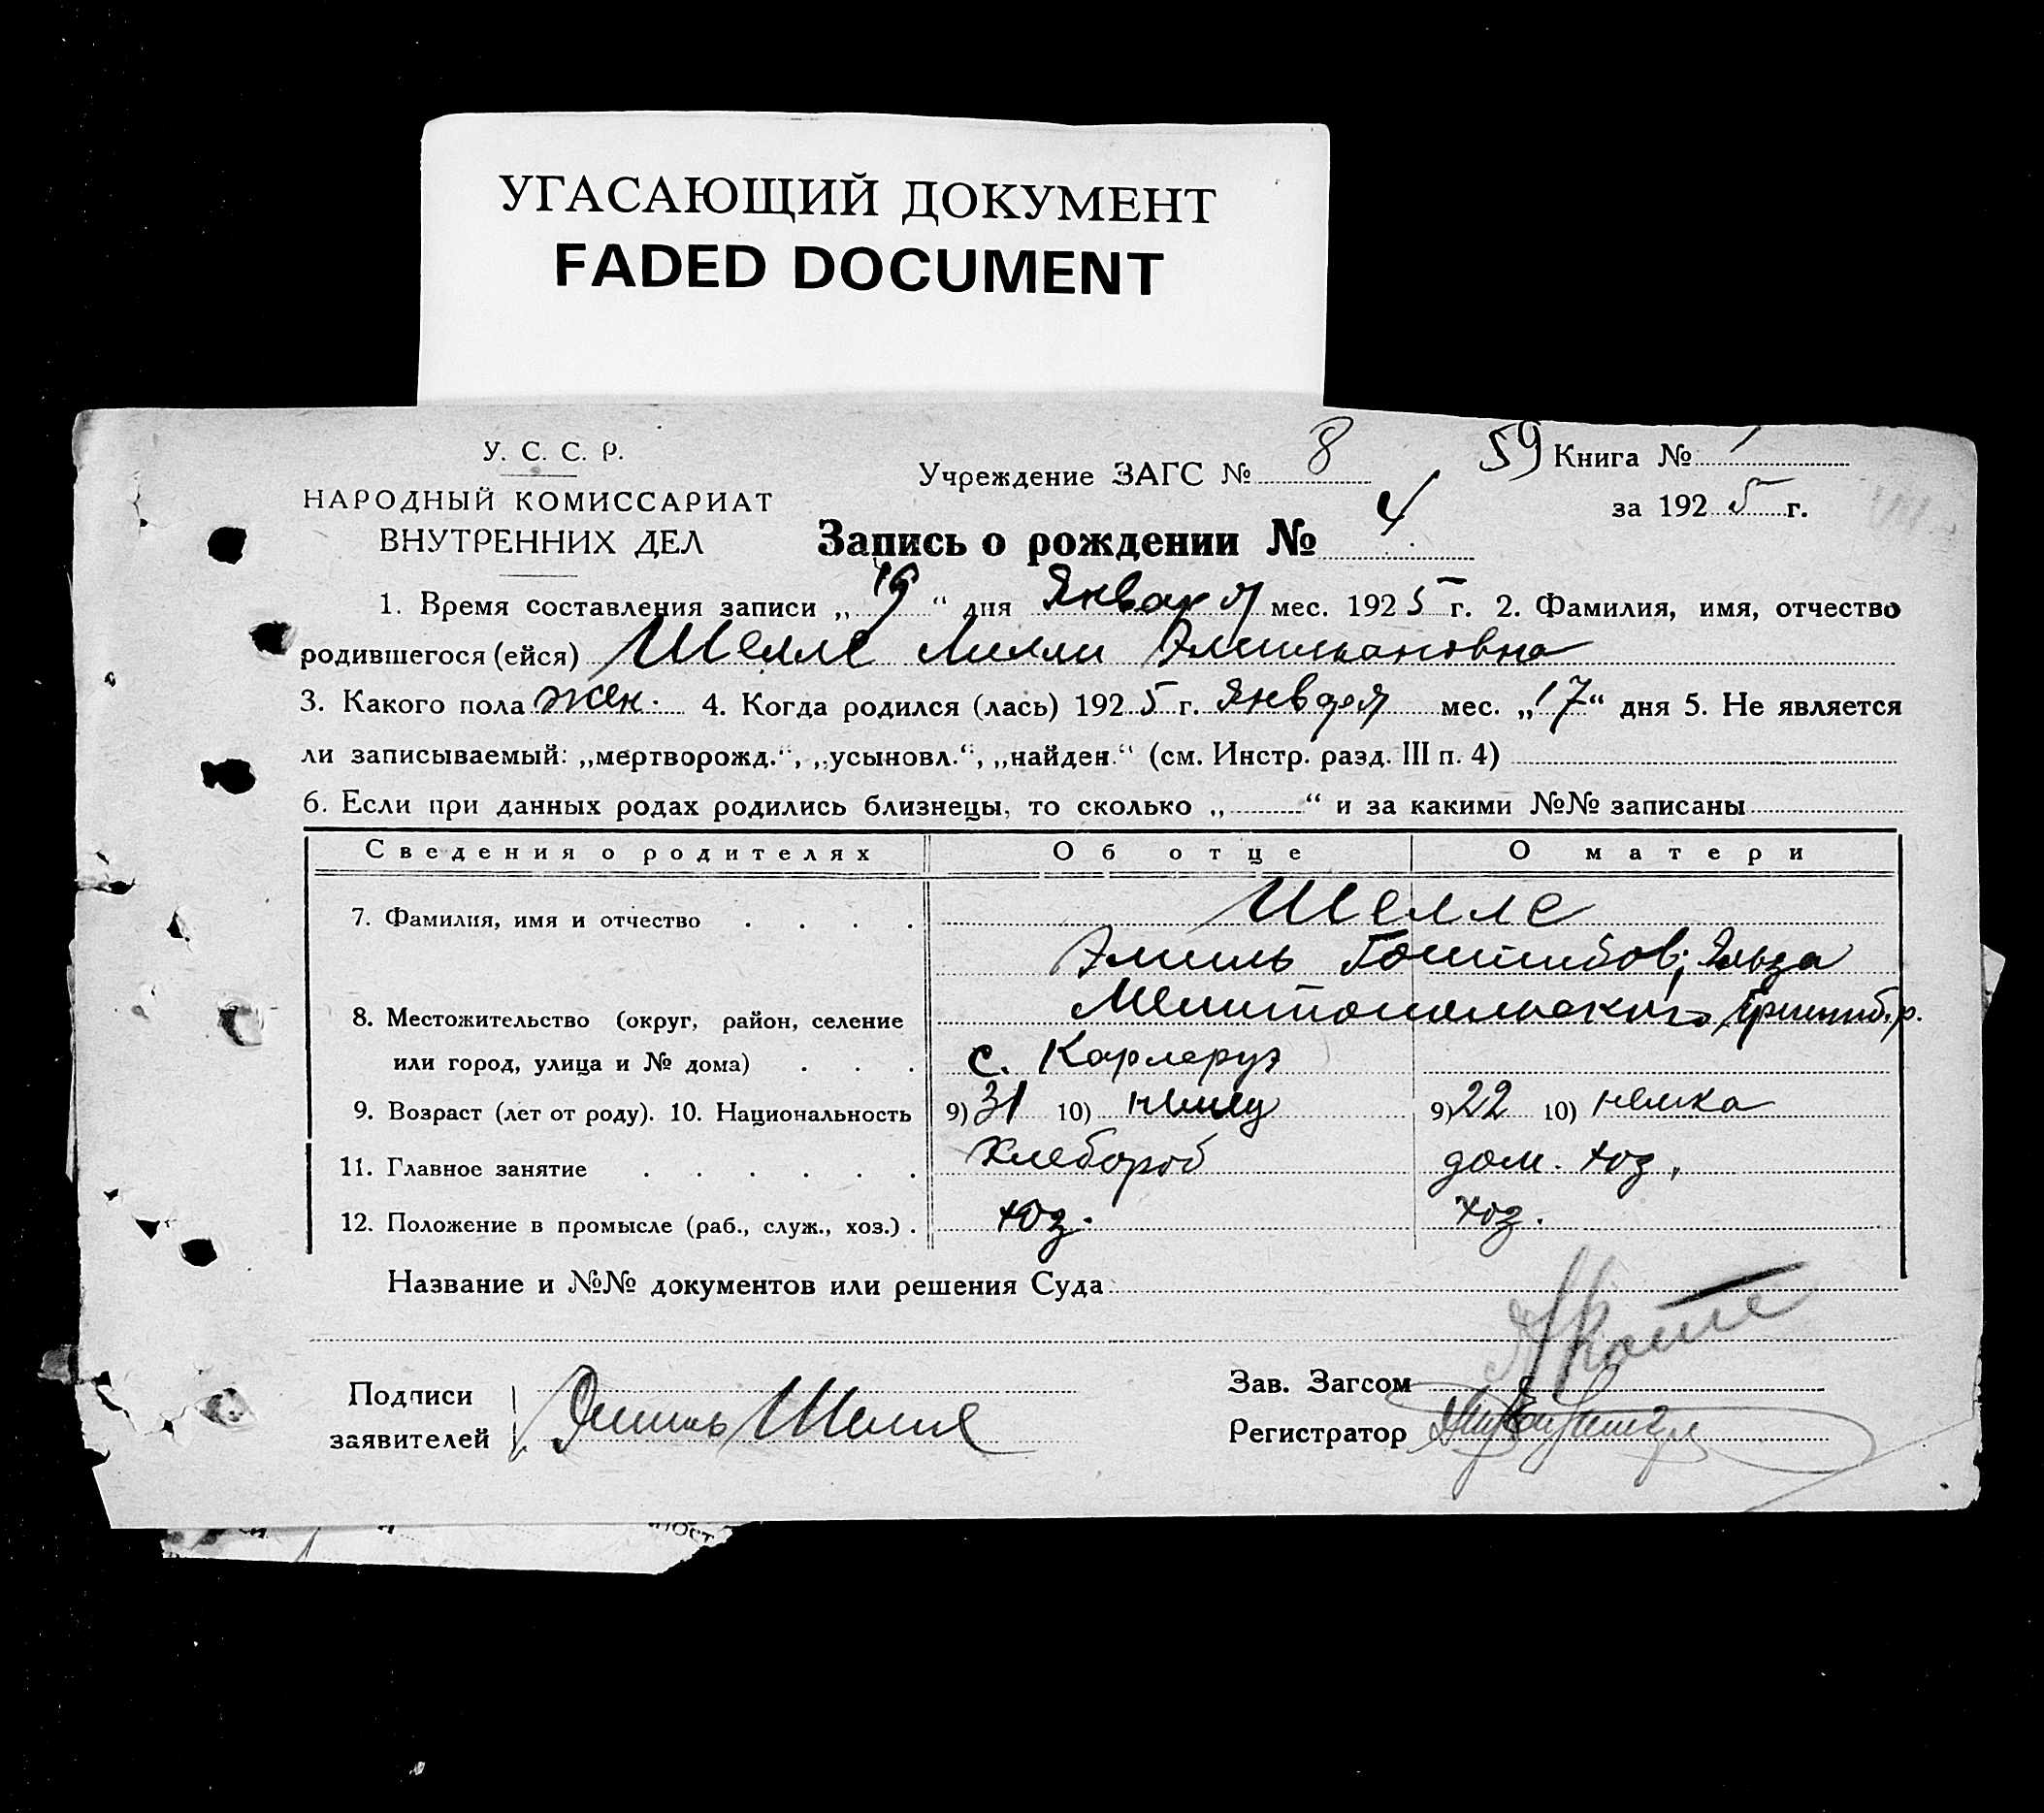 УГАСАЮЩИЙ ДОКУМЕНТ
FADED DOCUMENT
У. С. С. Р.
НАРОДНЫЙ КОМИССАРИАТ
ВНУТРЕННИХ ДЕЛ
Учреждение ЗАГС № 8
59 Книга № 1
за 1925 г.
Запись о рождении № 4
1. Время составления записи „19“ дня Января мес. 1925 г. 2. Фамилия, имя, отчество
родившегося (ейся) Шелле Лилли Эмильяновна
3. Какого пола жен. 4. Когда родился (лась) 1925 г. Января мес. „17“ дня 5. Не является
ли записываемый: „мертворожд.“, „усыновл.“, „найден.“ (см. Инстр. разд. III п. 4)
6. Если при данных родах родились близнецы, то сколько „ “ и за какими №№ записаны
Сведения о родителях Об отце О матери
7. Фамилия, имя и отчество Шелле
Эмиль Готтлибов; Эльза
8. Местожительство (округ, район, селение Мелитопольского, р.
или город, улица и № дома) с. Карлеруэ
9. Возраст (лет от роду). 10. Национальность 9) 31 10) немец 9) 22 10) немка
11. Главное занятие Хлебороб дом. хоз.
12. Положение в промысле (раб., служ., хоз.) хоз. хоз.
Название и №№ документов или решения Суда
Подписи
заявителей Эмиль Шелле
Зав. Загсом
Регистратор